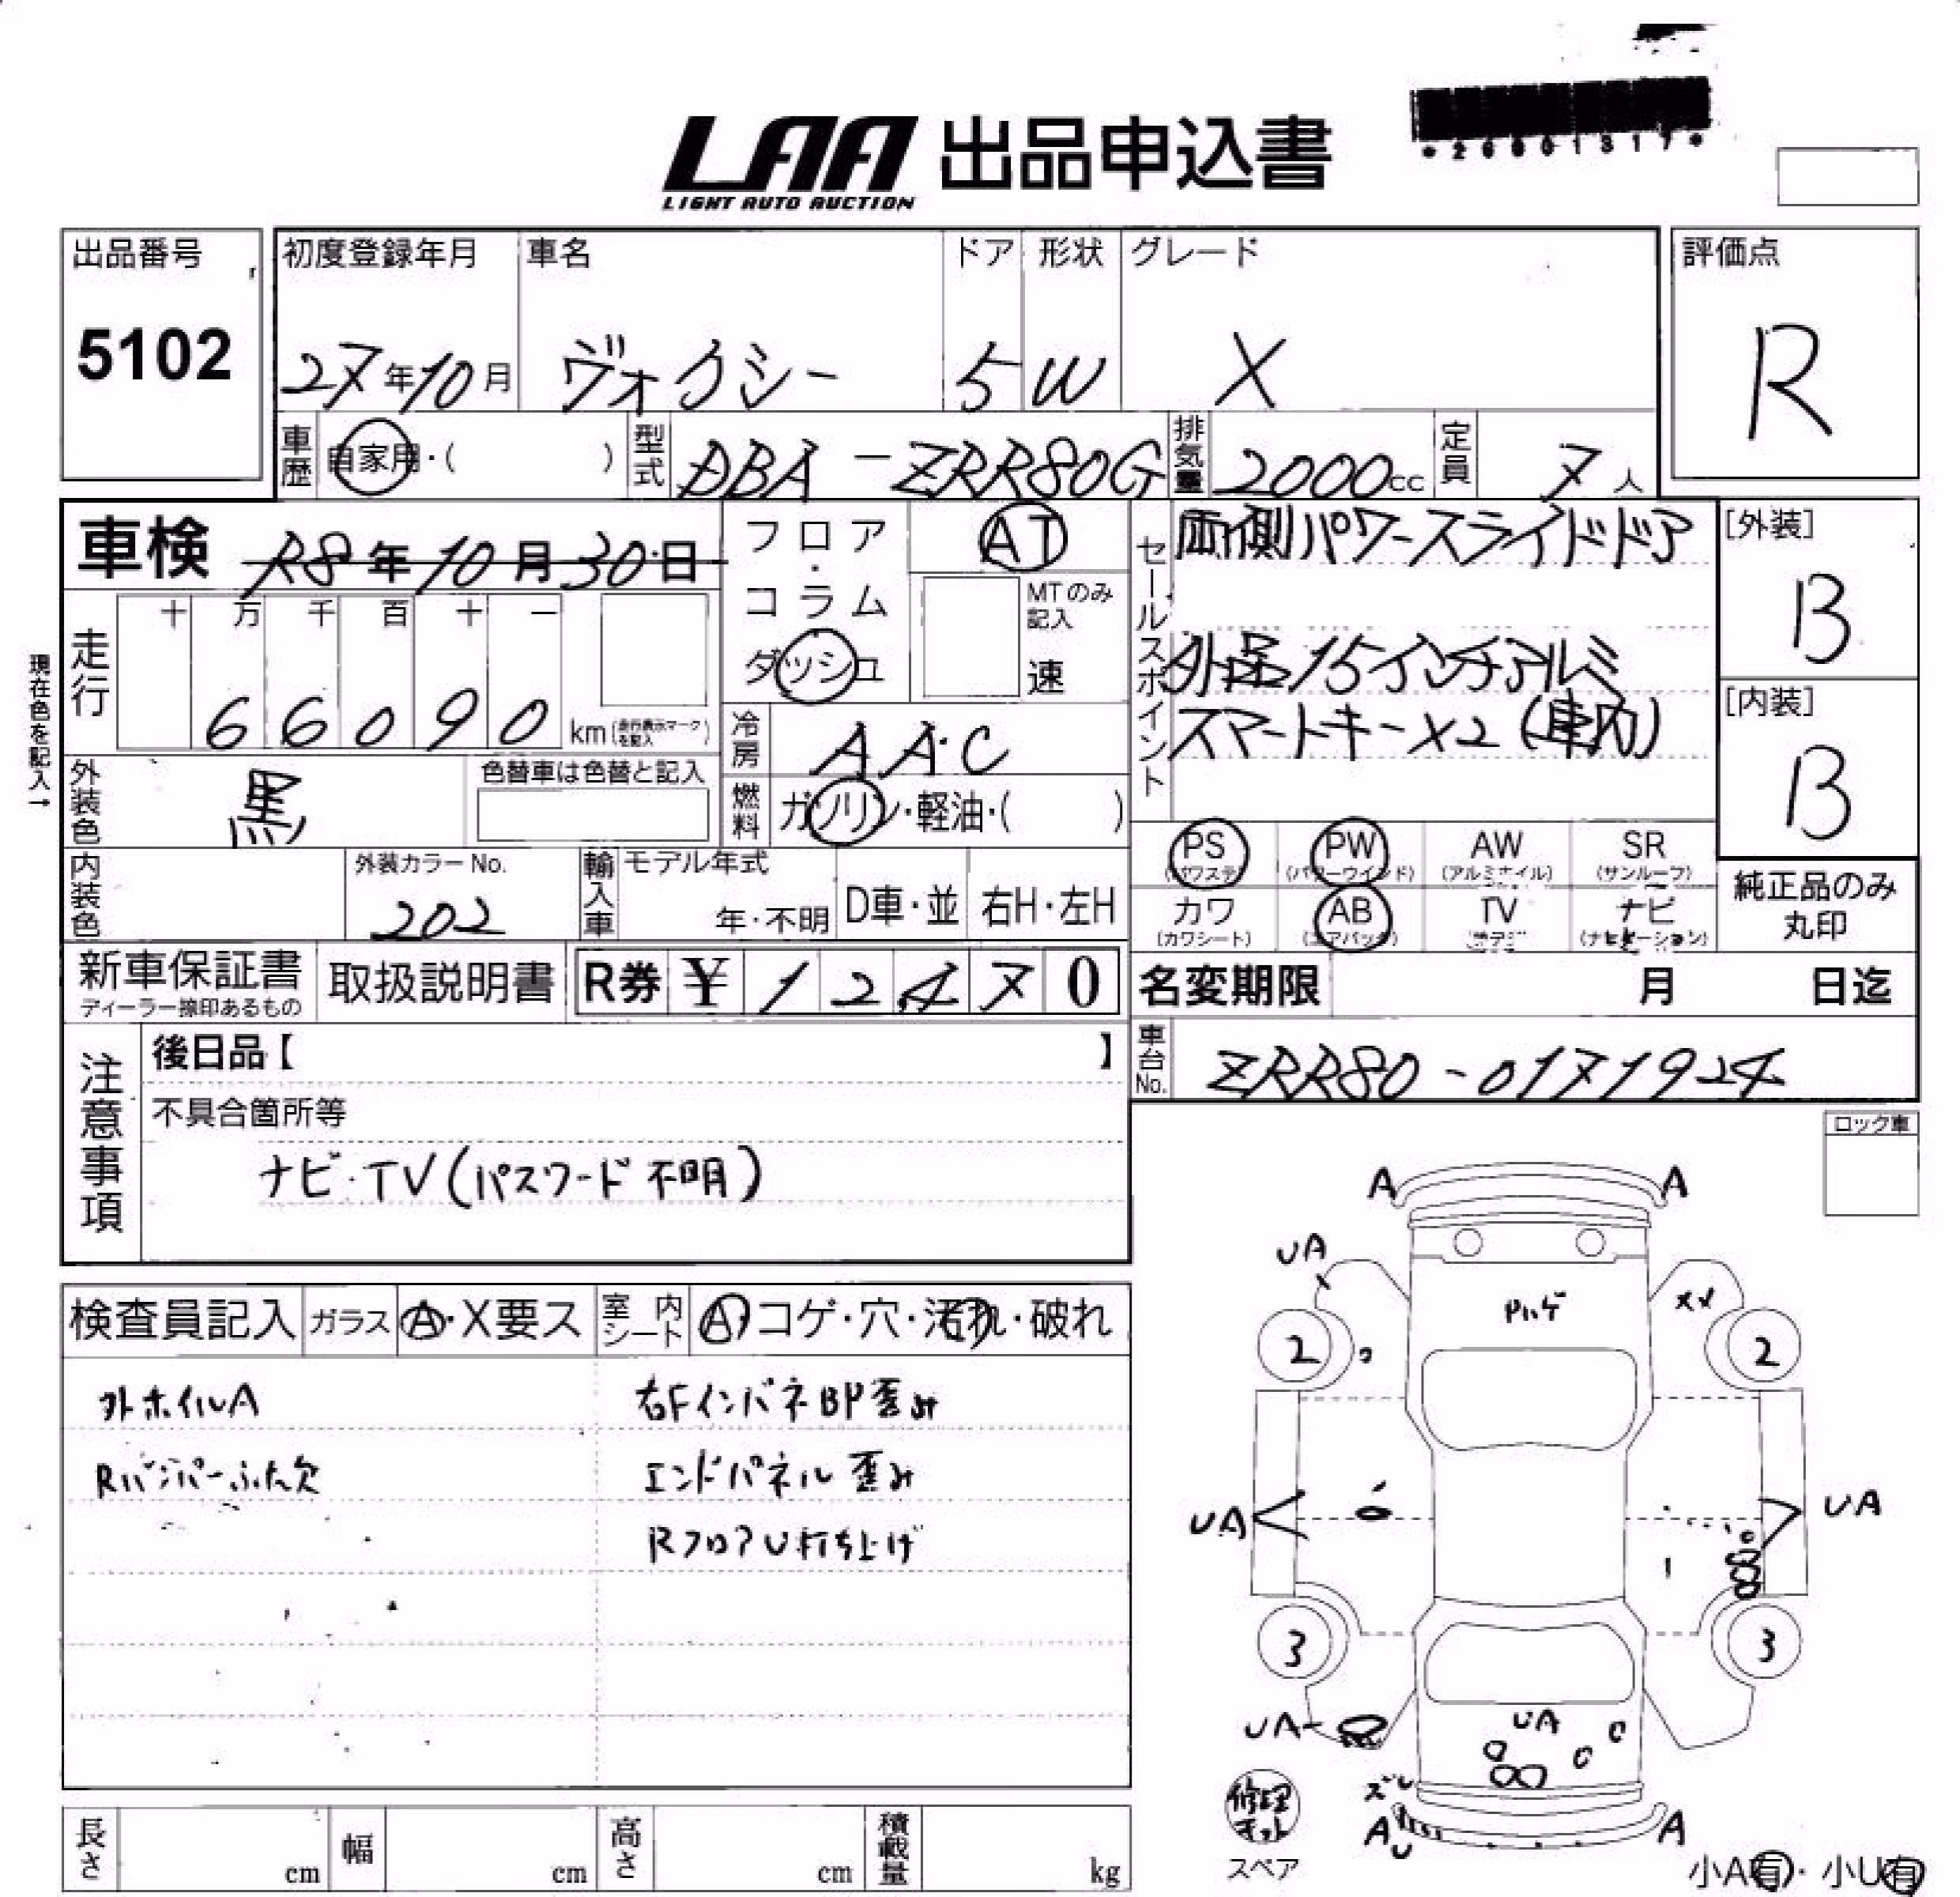 *26001317*
LAA 出品申込書
LIGHT AUTO AUCTION
出品番号
5102
初度登録年月
27年10月
車名
ヴォクシー
ドア
5
形状
W
グレード
X
評価点
R
車歴
自家用・( )
型式
DBA-ZRR80G
排気量
2000cc
定員
7人
車検 R8年10月30日
現在色を記入→
走行
十 万 千 百 十 一
66090 km(走行表示マークを記入)
フロア・コラム
ダッシュ
AT
MTのみ記入
速
冷房
AAC
燃料
ガソリン・軽油・( )
セールスポイント
両側パワースライドドア
外品15インチアルミ
スマートキーX2(車内)
[外装]
B
[内装]
B
外装色
黒
色替車は色替と記入
内装色
外装カラーNo.
202
輸入車
モデル年式
年・不明
D車・並
右H・左H
PS
(パワステ)
PW
(パワーウインド)
AW
(アルミホイル)
SR
(サンルーフ)
カワ
(カワシート)
AB
(エアバック)
TV
ナビ
(ナビゲーション)
純正品のみ
丸印
新車保証書
ディーラー捺印あるもの
取扱説明書
R券 ¥12470
名変期限 月 日迄
車台No.
ZRR80-0171924
注意事項
後日品【 】
不具合箇所等
ナビ・TV(パスワード不明)
ロック車
検査員記入
ガラス
A・X要ス
室内シート
A・コゲ・穴・汚れ・破れ
外ホイルA
Rバンパーふた欠
右FインパネBP歪み
エンドパネル歪み
RフロアU打ち上げ
A A
UA
Pハゲ
XX
2 2
UA UA
3 3
UA
UA
ズレ
AU A
修理キット
スペア
小A有・小U有
長さ cm
幅 cm
高さ cm
積載量 kg